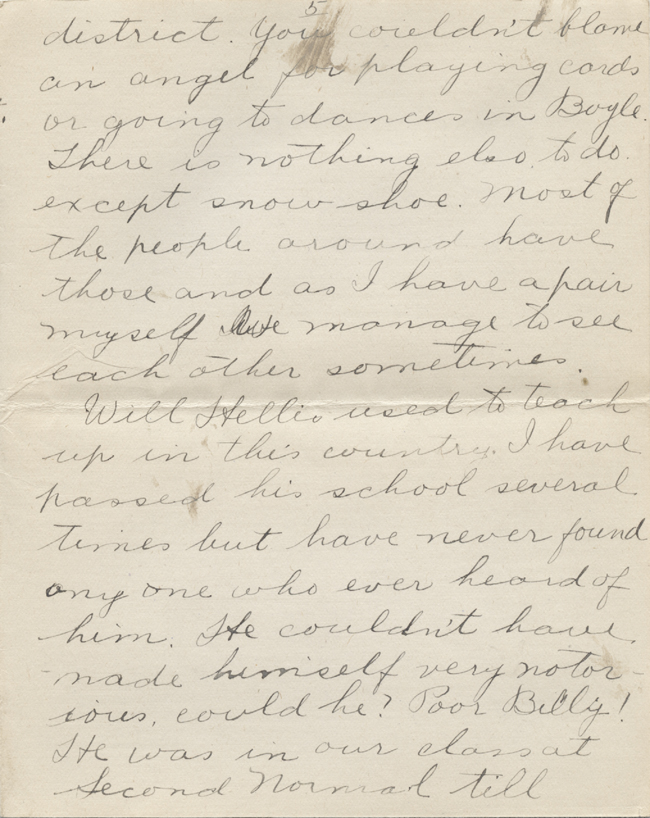 5
district. You couldn't blame
an angel for playing cards
or going to dances in Boyle.
There is nothing else to do
except snow shoe. Most of
the people around have
those and as I have a pair
myself we manage to see
each other sometimes.
Will Hellis used to teach
up in this country. I have
passed his school several
times but have never found
any one who ever heard of
him. He couldn't have
made himself very notor-
ious, could he? Poor Billy!
He was in our class at
Second Normal till